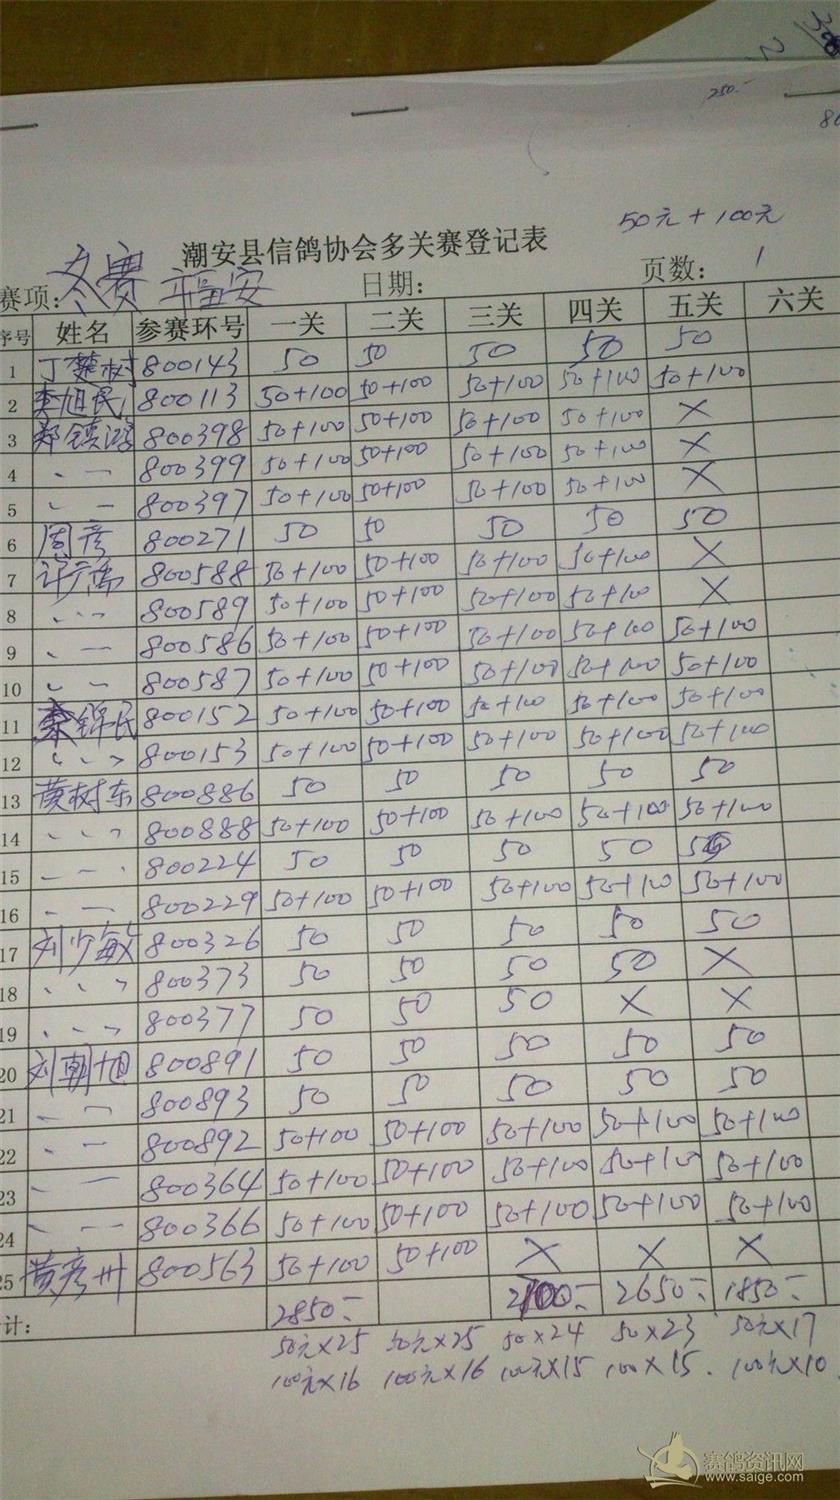 250.-
50元+100元
潮安县信鸽协会多关赛登记表
赛项: 冬赛 福安 日期: 页数: 1
序号 姓名 参赛环号 一关 二关 三关 四关 五关 六关
1 丁楚树 800143 50 50 50 50 50
2 李旭民 800113 50+100 50+100 50+100 50+100 50+100
3 郑镇鸿 800398 50+100 50+100 50+100 50+100 ×
4 800399 50+100 50+100 50+100 50+100 ×
5 800397 50+100 50+100 50+100 50+100 ×
6 周彦 800271 50 50 50 50 50
7 许 800588 50+100 50+100 50+100 50+100 ×
8 800589 50+100 50+100 50+100 50+100 ×
9 800586 50+100 50+100 50+100 50+100 50+100
10 800587 50+100 50+100 50+100 50+100 50+100
11 锦民 800152 50+100 50+100 50+100 50+100 50+100
12 800153 50+100 50+100 50+100 50+100 50+100
13 黄树东 800886 50 50 50 50 50
14 800888 50+100 50+100 50+100 50+100 50+100
15 800224 50 50 50 50 50
16 800229 50+100 50+100 50+100 50+100 50+100
17 刘少敏 800326 50 50 50 50 50
18 800373 50 50 50 50 ×
19 800377 50 50 50 × ×
20 刘朝旭 800891 50 50 50 50 50
21 800893 50 50 50 50 50
22 800892 50+100 50+100 50+100 50+100 50+100
23 800364 50+100 50+100 50+100 50+100 50+100
24 800366 50+100 50+100 50+100 50+100 50+100
25 黄彦州 800563 50+100 50+100 × × ×
计: 2850.- 2650.- 1850.-
50元×25 50元×25 50×24 50×23 50元×17
100元×16 100元×16 100元×15 100×15. 100元×10.
赛鸽资讯网
www.saige.com